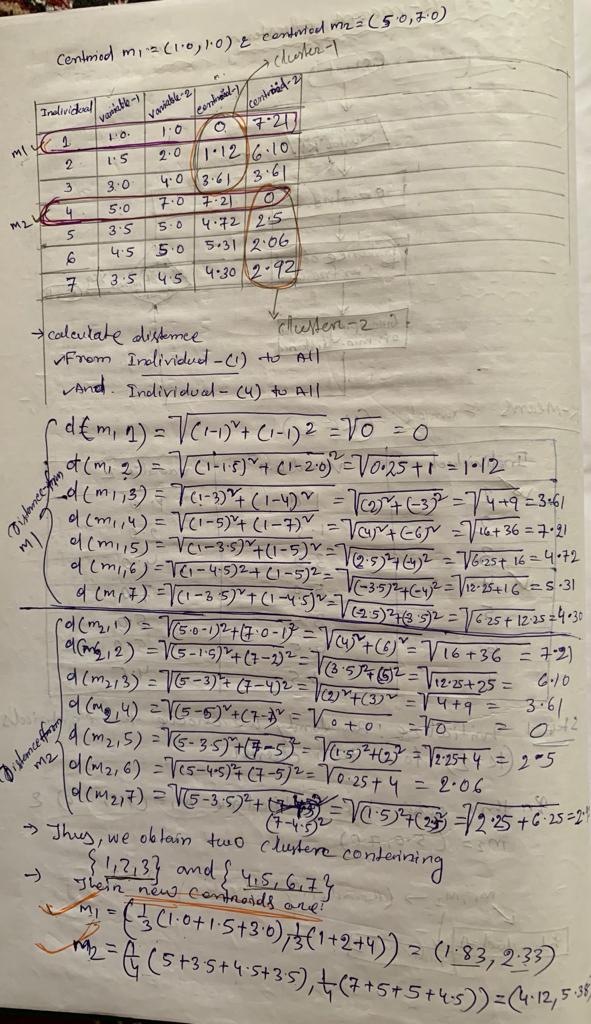 Centriod m1 = (1.0, 1.0) & centriod m2 = (5.0, 7.0)
cluster-1
Individual variable-1 variable-2 centroid-1 centroid-2
m1 1 1.0 1.0 0 7.21
2 1.5 2.0 1.12 6.10
3 3.0 4.0 3.61 3.61
m2 4 5.0 7.0 7.21 0
5 3.5 5.0 4.72 2.5
6 4.5 5.0 5.31 2.06
7 3.5 4.5 4.30 2.92
cluster-2
→ calculate distance
✓From Individual-(1) to All
✓And Individual-(4) to All
Distance from m1
d(m1, 1) = √(1-1)² + (1-1)2 = √0 = 0
d(m1, 2) = √(1-1.5)² + (1-2.0)² = √0.25+1 = 1.12
d(m1,3) = √(1-3)² + (1-4)² = √(2)²+(-3)² = √4+9 = 3.61
d(m1,4) = √(1-5)²+(1-7)² = √(4)²+(-6)² = √16+36 = 7.21
d(m1,5) = √(1-3.5)²+(1-5)² = √(2.5)²+(4)² = √6.25+16 = 4.72
d(m1,6) = √(1-4.5)2+(1-5)² = √(-3.5)²+(-4)² = √12.25+16 = 5.31
d(m1,7) = √(1-3.5)²+(1-4.5)² = √(-2.5)²+(3.5)² = √6.25+12.25 = 4.30
Distance from m2
d(m2,1) = √(5.0-1)²+(7.0-1)² = √(4)²+(6)² = √16+36 = 7.21
d(m2,2) = √(5-1.5)²+(7-2)² = √(3.5)²+(5)² = √12.25+25 = 6.10
d(m2,3) = √(5-3)²+(7-4)2 = √(2)²+(3)² = √4+9 = 3.61
d(m2,4) = √(5-5)²+(7-7)² = √0+0 = √0 = 0
d(m2,5) = √(5-3.5)²+(7-5)² = √(1.5)²+(2)² = √2.25+4 = 2.5
d(m2,6) = √(5-4.5)²+(7-5)² = √0.25+4 = 2.06
d(m2,7) = √(5-3.5)²+(7-4.5)² = √(1.5)²+(2.5)² = √2.25+6.25 =
→ Thus, we obtain two clusters conterining
{1,2,3} and {4,5,6,7}
→ Their new centroids are:
m1 = (1/3 (1.0+1.5+3.0), 1/3 (1+2+4)) = (1.83, 2.33)
m2 = (1/4 (5+3.5+4.5+3.5), 1/4 (7+5+5+4.5)) = (4.12, 5.38